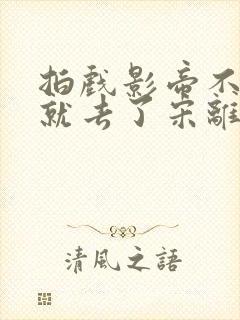 拍戲影帝不
就去了宋離
清風之語